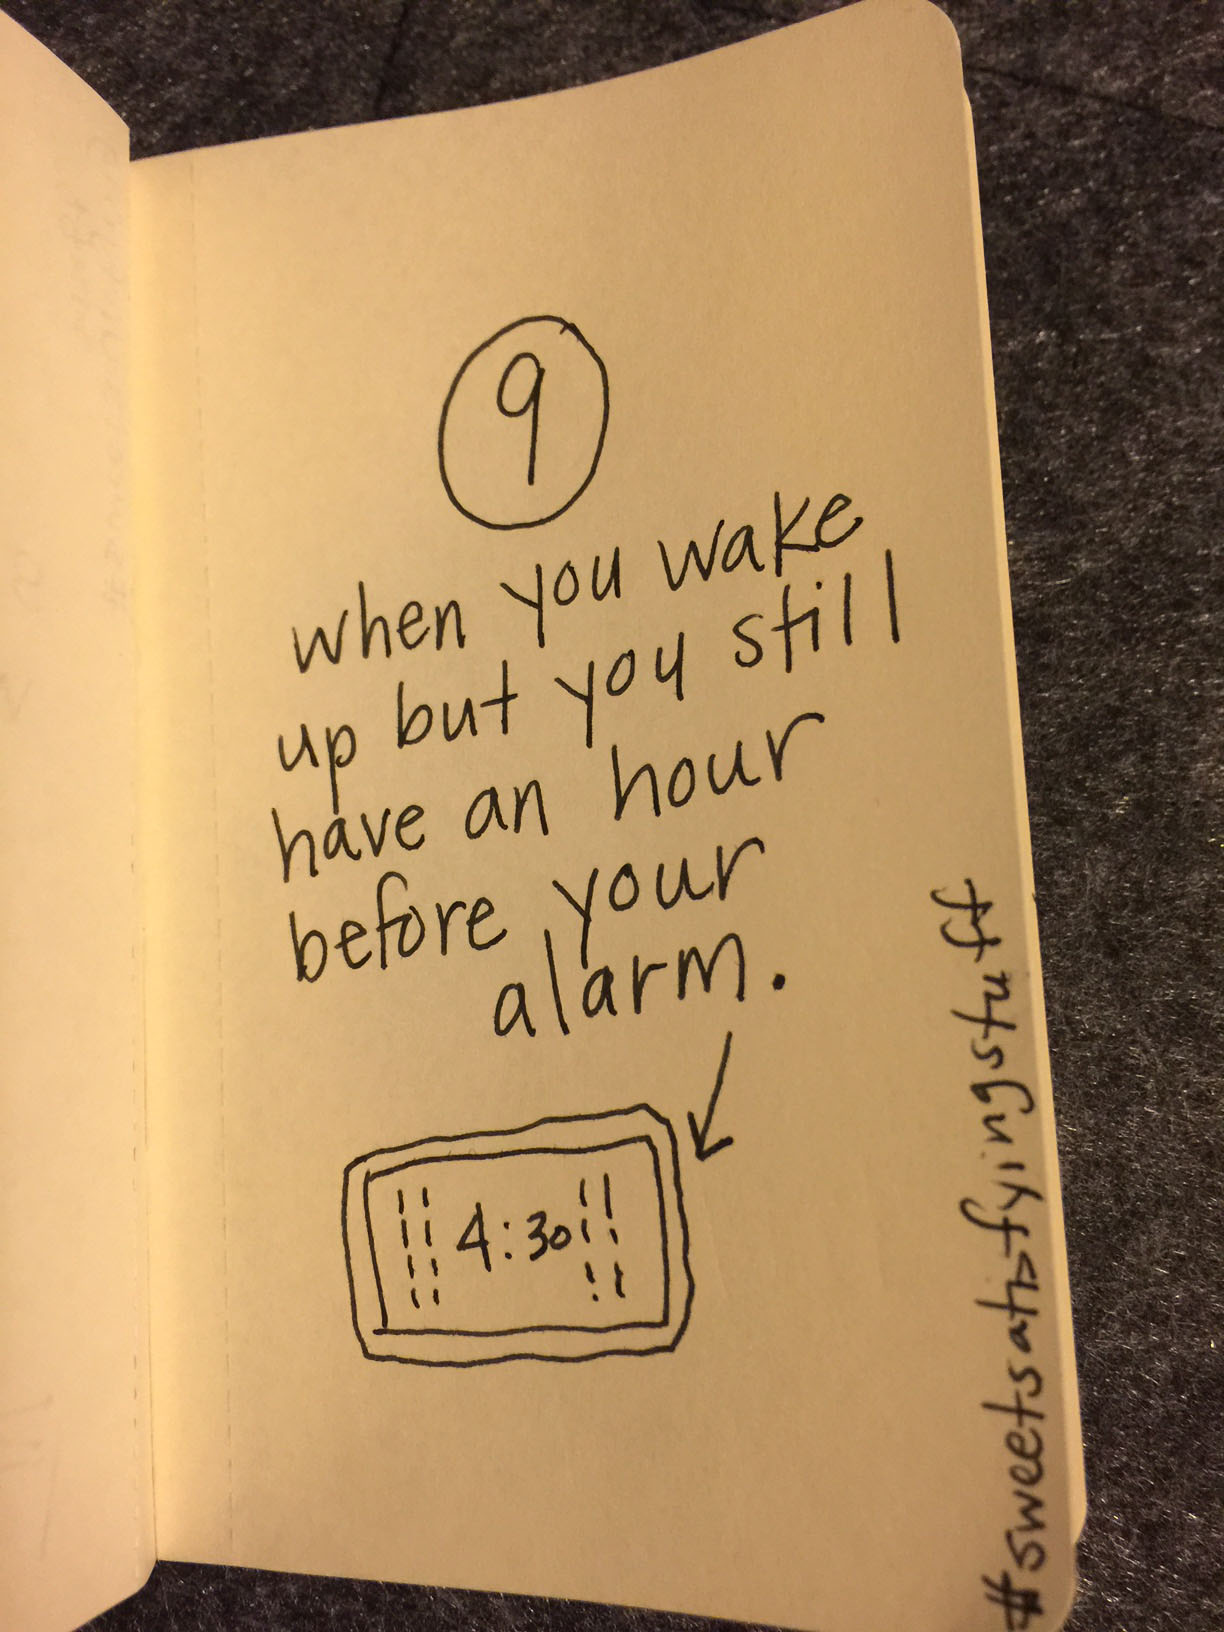 9
when you wake
up but you still
have an hour
before your
alarm.
4:30
#sweetsatisfyingstuff